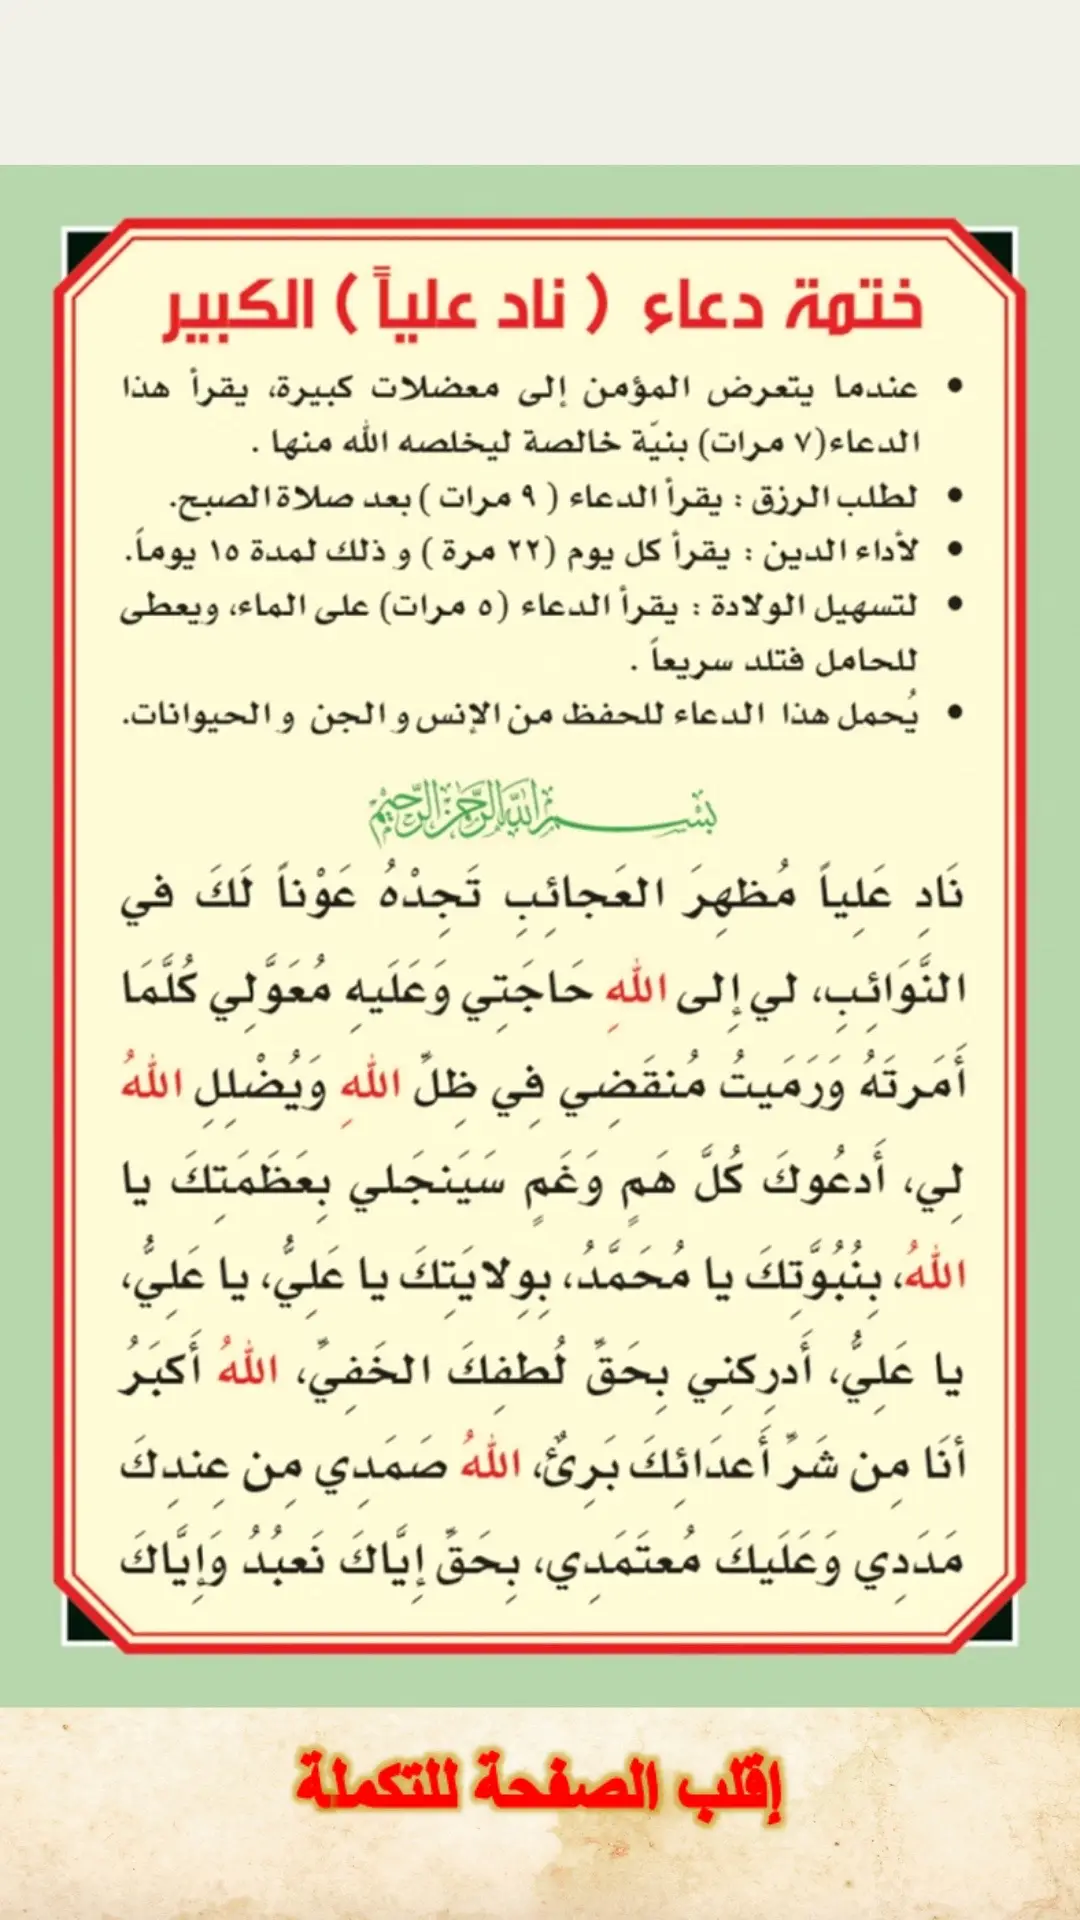 ختمة دعاء ( ناد علياً ) الكبير
• عندما يتعرض المؤمن إلى معضلات كبيرة، يقرأ هذا
الدعاء(٧ مرات) بنيّة خالصة ليخلصه الله منها .
• لطلب الرزق : يقرأ الدعاء ( ٩ مرات ) بعد صلاة الصبح.
• لأداء الدين : يقرأ كل يوم (٢٢ مرة ) و ذلك لمدة ١٥ يوماً.
• لتسهيل الولادة : يقرأ الدعاء (٥ مرات) على الماء، ويعطى
للحامل فتلد سريعاً .
• يُحمل هذا الدعاء للحفظ من الإنس و الجن و الحيوانات.
بسم الله الرحمن الرحيم
نَادِ عَلِياً مُظهِرَ العَجائِبِ تَجِدْهُ عَوْناً لَكَ في
النَّوَائِبِ، لي إِلى اللهِ حَاجَتِي وَعَلَيهِ مُعَوَّلِي كُلَّمَا
أَمَرتَهُ وَرَمَيتُ مُنقَضِي فِي ظِلِّ اللهِ وَيُضْلِلِ اللهُ
لِي، أَدعُوكَ كُلَّ هَمٍ وَغَمٍ سَيَنجَلي بِعَظَمَتِكَ يا
اللهُ، بِنُبُوَّتِكَ يا مُحَمَّدُ، بِوِلايَتِكَ يا عَلِيُّ، يا عَلِيُّ،
يا عَلِيُّ، أَدرِكنِي بِحَقِّ لُطفِكَ الخَفِيِّ، اللهُ أَكبَرُ
أنَا مِن شَرِّ أَعدَائِكَ بَرِئٌ، اللهُ صَمَدِي مِن عِندِكَ
مَدَدِي وَعَلَيكَ مُعتَمَدِي، بِحَقِّ إِيَّاكَ نَعبُدُ وَإِيَّاكَ
إقلب الصفحة للتكملة